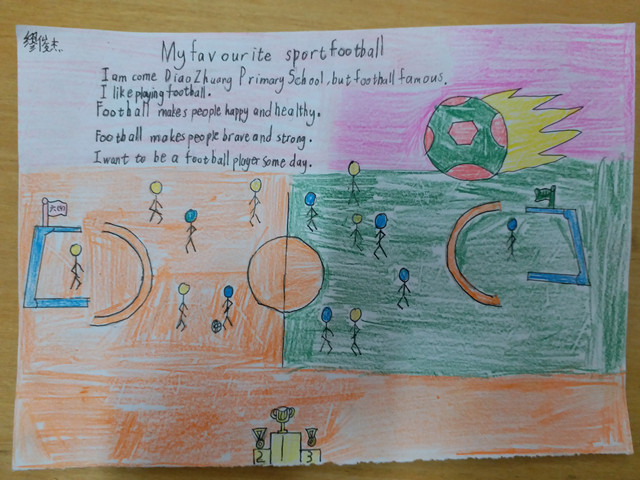 缪俊杰
My favourite sport football
I am come DiaoZhuang Primary School, but football famous.
I like playing football.
Football makes people happy and healthy.
Football makes people brave and strong.
I want to be a football player some day.
2 1 3